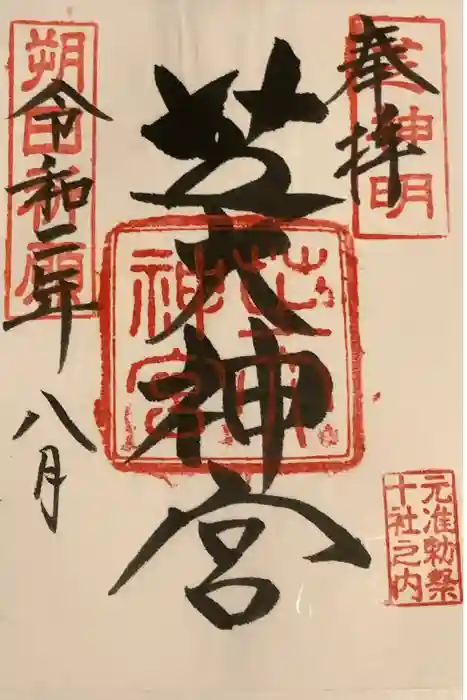 奉拝
芝神明
芝大神宮
芝大神宮
元准勅祭
十社之内
朔日祈願
令和二年
八月